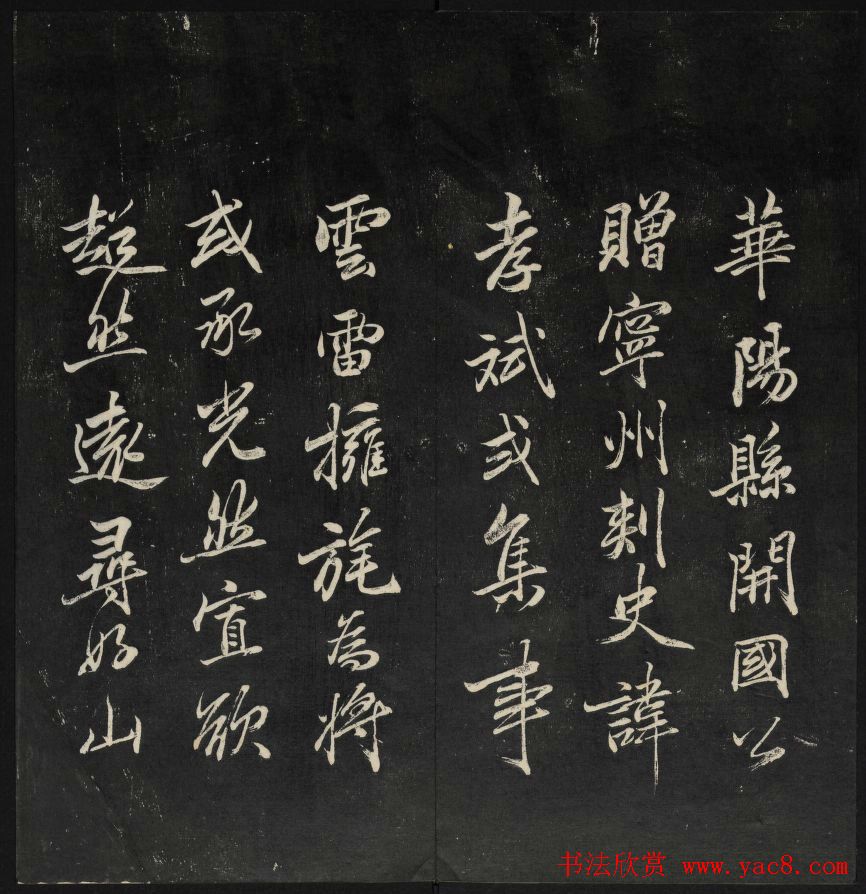 華陽縣開國公
贈寧州刾史諱
孝斌或集事
雲雷擁旄為將
或承光然宣欲
超然遠尋好山
书法欣赏 www.yac8.com